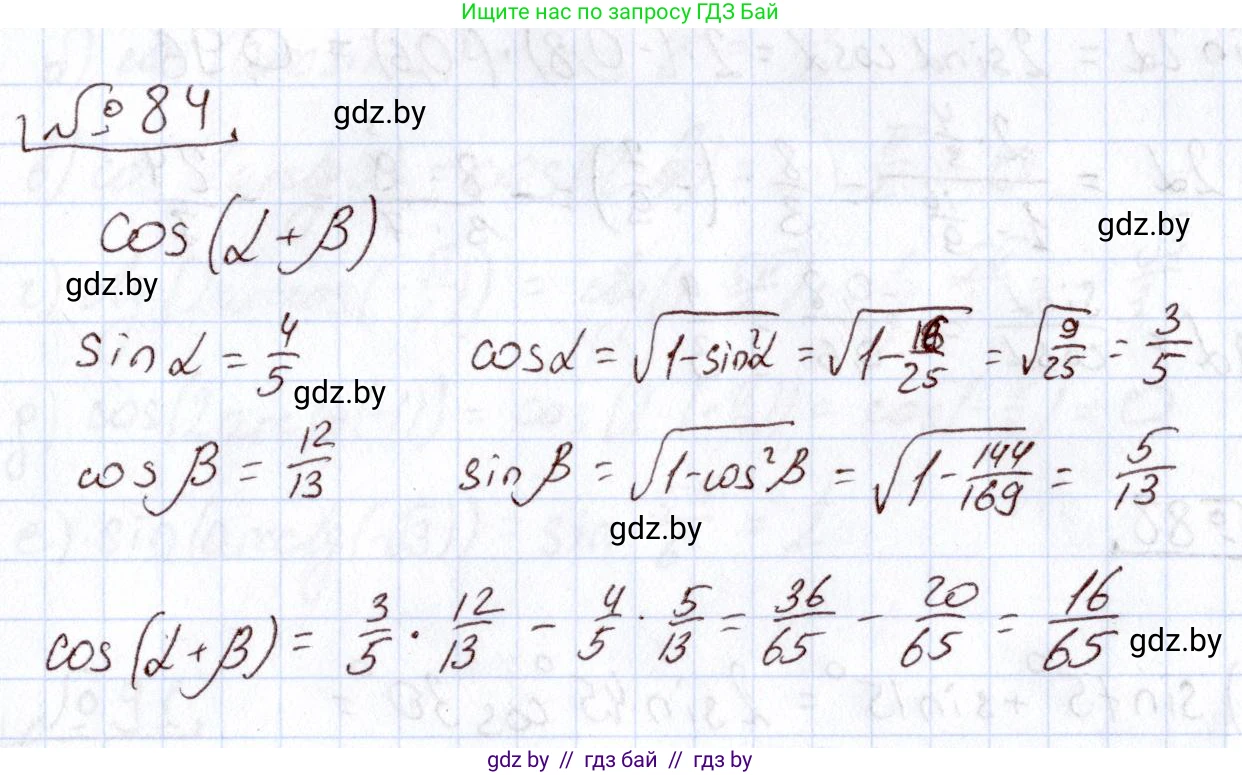 Ищите нас по запросу ГДЗ Бай
№ 84
gdz.by
cos(α+β)
gdz.by
gdz.by
sin α = 4/5 cos α = √(1-sin²α) = √(1-16/25) = √(9/25) = 3/5
gdz.by
cos β = 12/13 sin β = √(1-cos²β) = √(1-144/169) = 5/13
gdz.by
cos(α+β) = 3/5 · 12/13 - 4/5 · 5/13 = 36/65 - 20/65 = 16/65
gdz.by
gdz by // гдз бай // гдз by